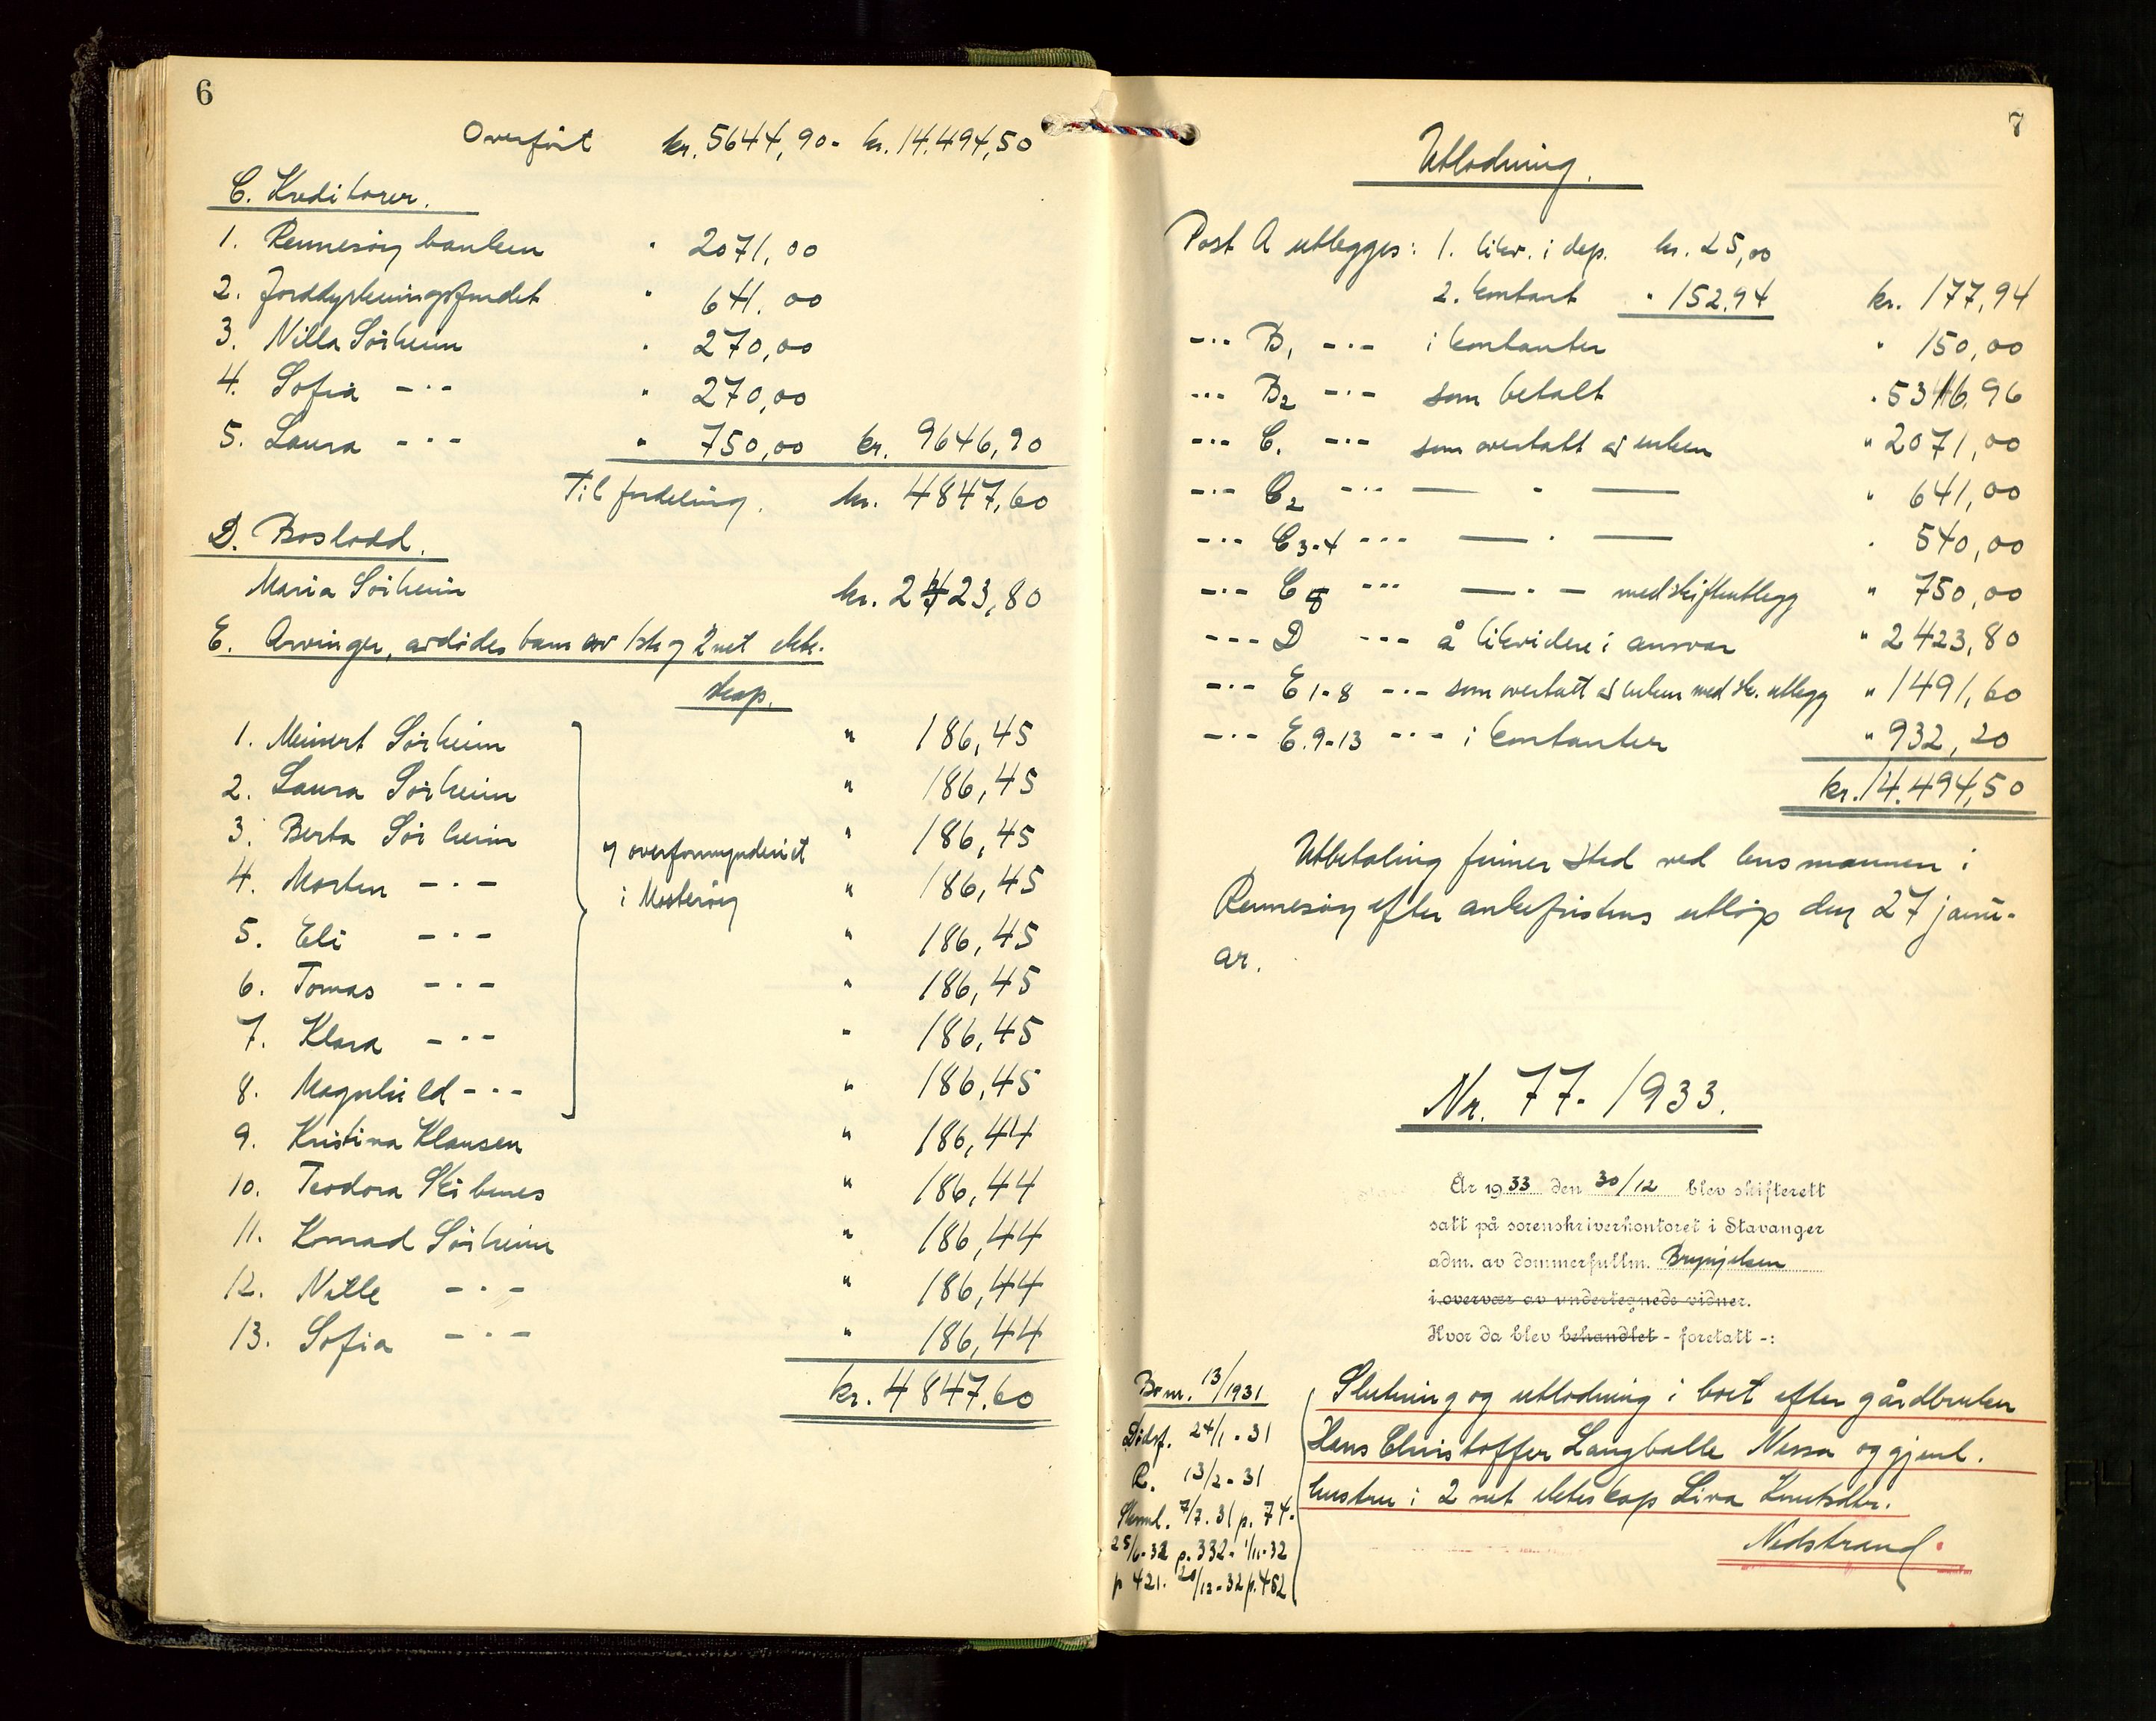 6
Overført kr. 5644,90- kr. 14.494,50
C. Kreditorer.
1. Rennesøy banken " 2071,00
2. Jorddyrkningsfondet " 641.00
3. Nilla Sørheim " 270,00
4. Sofia -"- " 270,00
5. Laura -"- " 750,00 kr. 9646,90
Til fordeling. kr. 4847,60
D. Boslodd.
Maria Sørheim kr. 2423,80
E. Arvinger, avdødes barn av 1ste og 2net ekte-
skap.
1. Meinert Sørheim " 186,45
2. Laura Sørheim " 186,45
3. Berta Sørheim " 186,45
4. Morten -"- " 186,45
5. Eli -"- " 186,45
6. Tomas -"- " 186,45
7. Klara -"- " 186,45
8. Magnhild -"- " 186,45
v/ overformynderiet
i Mosterøy
9. Kristina Klausen " 186,44
10. Teodora Skibenes " 186,44
11. Konrad Sørheim " 186,44
12. Nille -"- " 186,44
13. Sofia -"- " 186,44
kr. 4847.60
7
Utlodning.
Post A utlegges: 1. likv. i dep. kr. 25,00
2. kontant " 152.94 kr. 177,94
-"- B1 -"- i kontanter " 150,00
-"- B2 -"- som betalt " 5316,96
-"- C. -"- som overtatt av enken " 2071,00
-"- C2 -"- — " — " 641,00
-"- C3-4 -"- — " — " 540,00
-"- C5 -"- — " — med skifteutlegg " 750,00
-"- D -"- å likvidere i ansvar " 2423,80
-"- E 1-8 -"- som overtatt av enken med sk. utlegg " 1491,60
-"- E. 9-13 -"- i kontanter " 932,20
kr. 14.494,50
Utbetaling finner sted ved lensmannen i
Rennesøy efter ankefristens utløp den 27 janu-
ar.
Nr. 77- 1933.
År 1933 den 30/12 blev skifterett
satt på sorenskriverkontoret i Stavanger
adm. av dommerfullm. Brynjelsen
i overvær av undertegnede vidner.
Hvor da blev behandlet - foretatt -:
Bo nr. 13/1931
Dødsf. 24/1-31
R. 13/2-31
7/7.31 p. 74-
25/6-32 p. 332- 1/11-32
p 421. 20/12-32 p. 462
Slutning og utlodning i boet efter gårdbruker
Hans Christoffer Langballe Nessa og gjenl.
hustru i 2 net ekteskap Liva Knutsdtr.
Nedstrand.